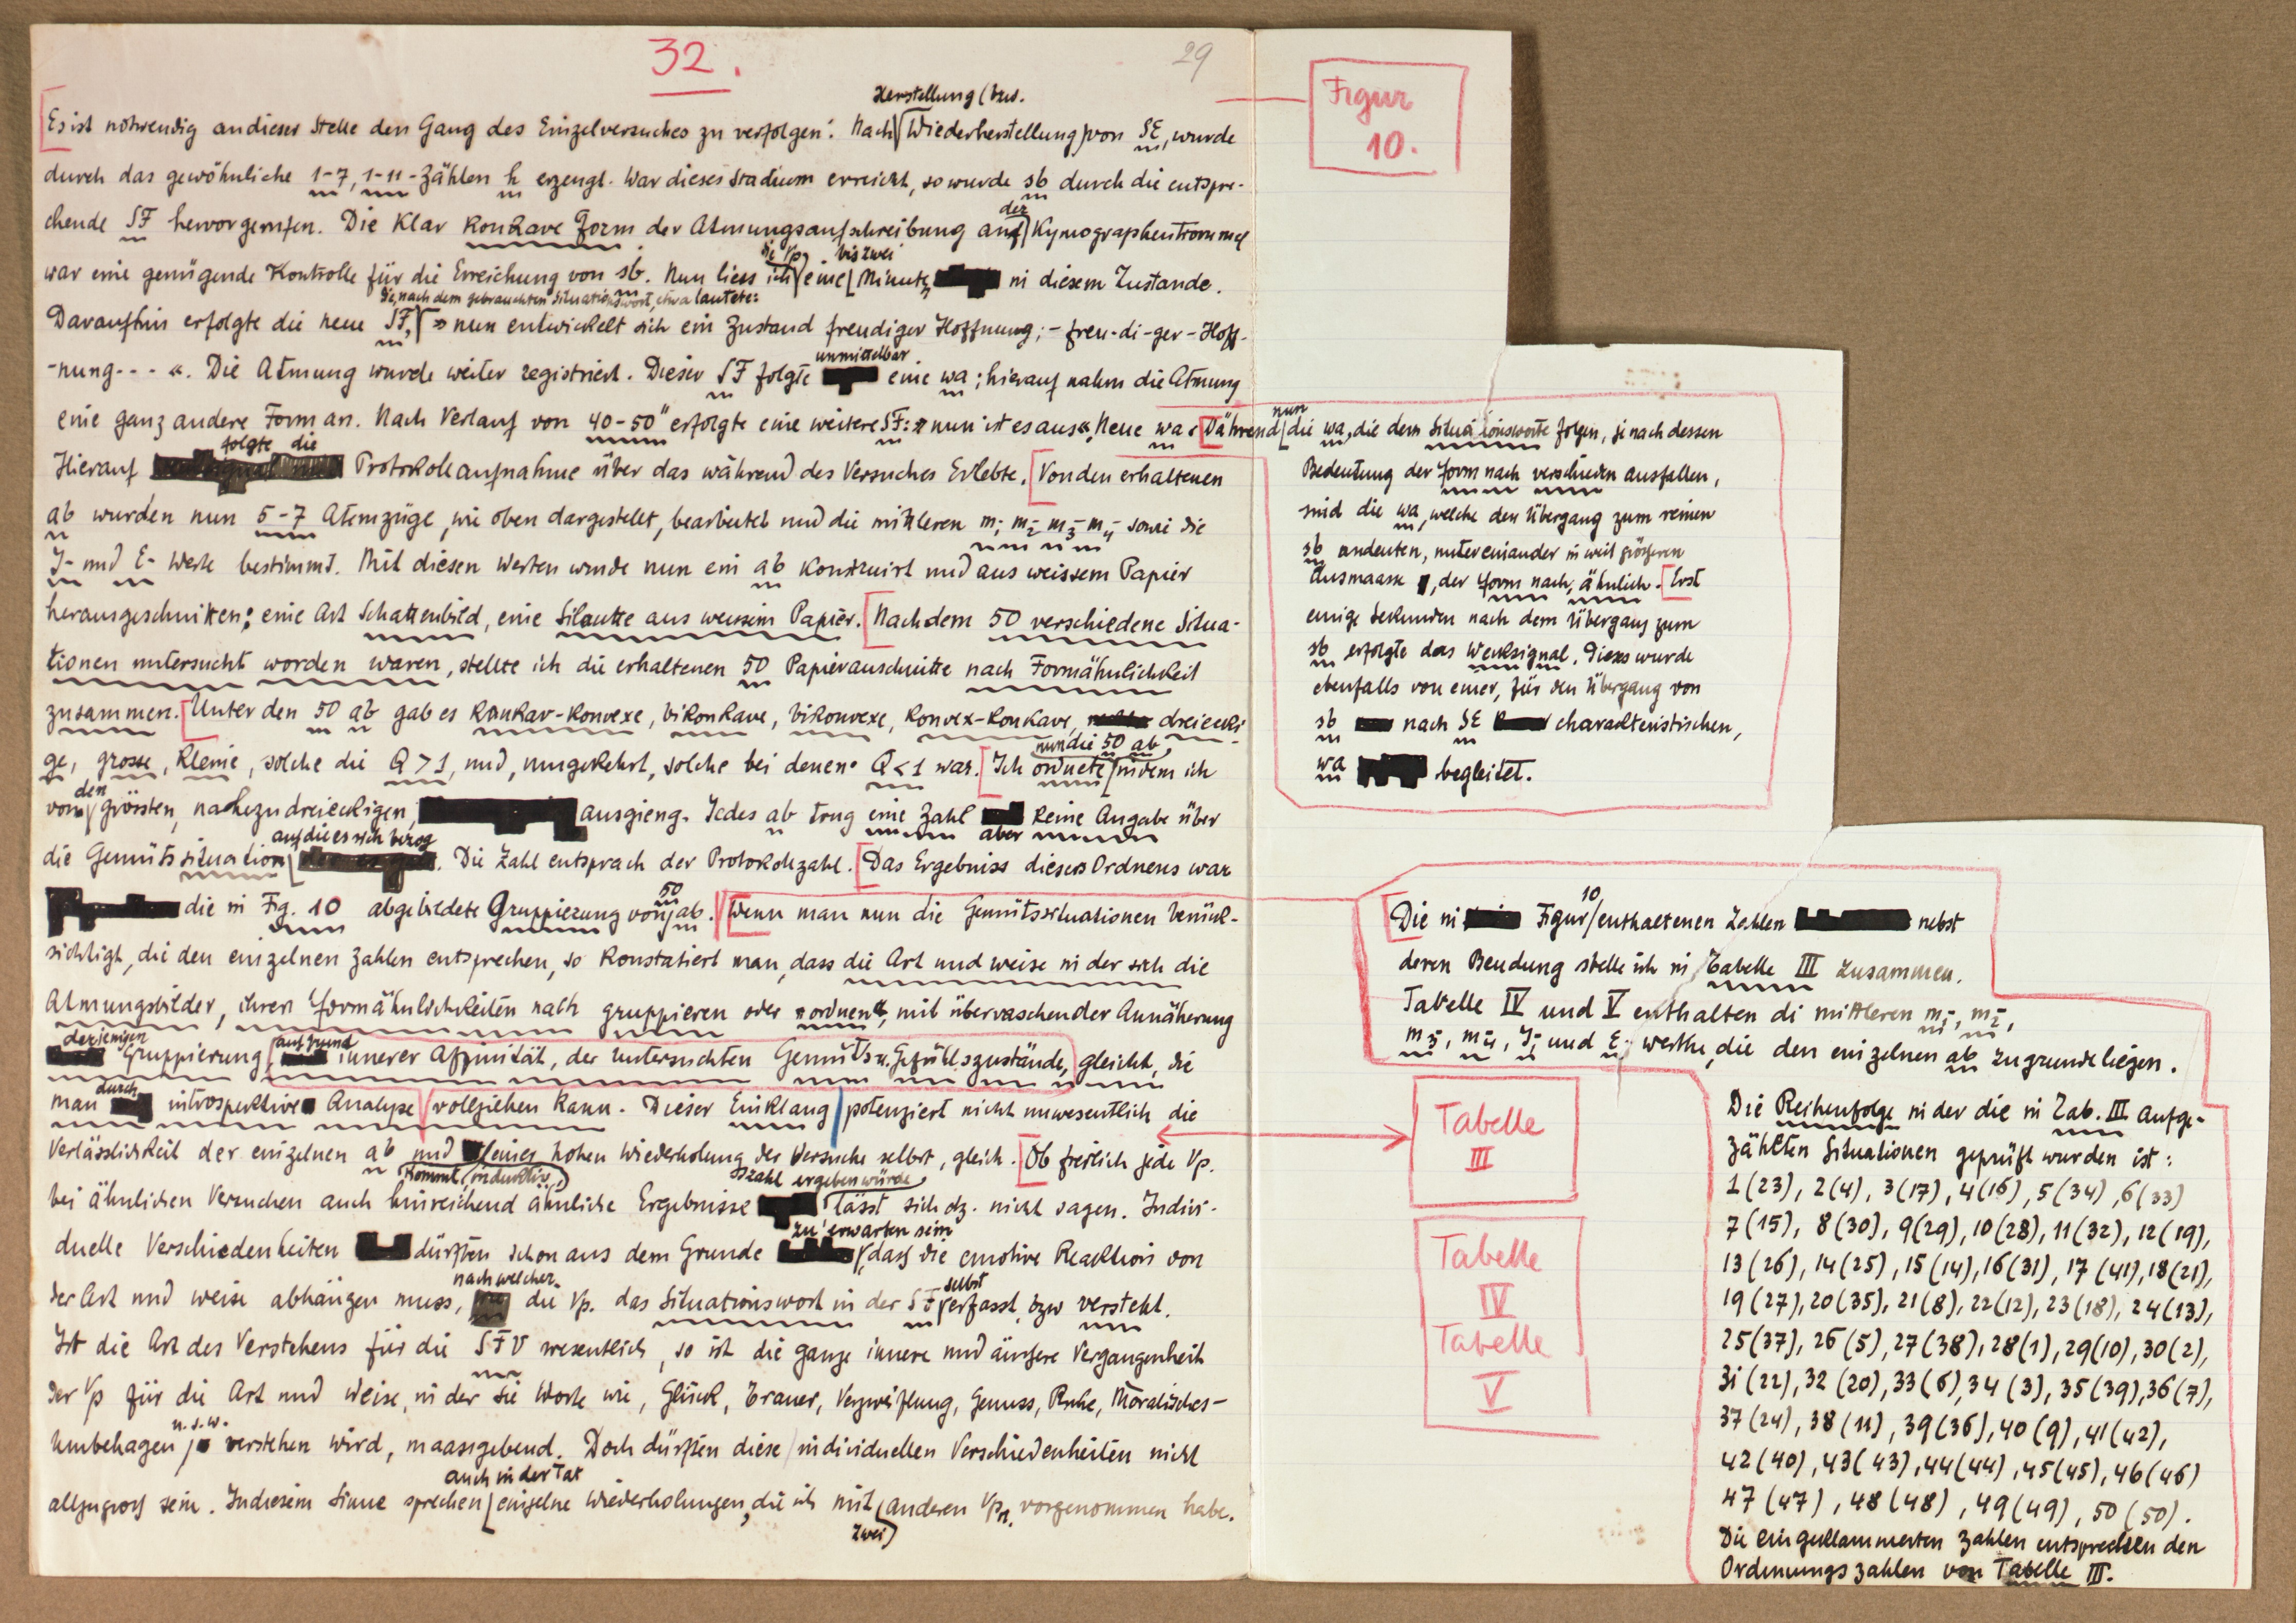 32.
29
Herstellung (bzw.
Es ist notwendig an dieser Stelle den Gang des Einzelversuches zu verfolgen: Nach Wiederherstellung) von SE, wurde
durch das gewöhnliche 1-7, 1-11-Zählen h erzeugt. War dieses Stadium erreicht, so wurde sb durch die entspre-
chende SF hervorgerufen. Die klar konkave Form der Atmungsaufschreibung auf der Kymographentrommel
war eine genügende Kontrolle für die Erreichung von sb. Nun liess ich die Vp eine bis zwei Minuten in diesem Zustande.
die, nach dem gebrauchten Situationswort, etwa lautete:
Daraufhin erfolgte die neue SF, » nun entwickelt sich ein Zustand freudiger Hoffnung; - freu-di-ger-Hoff-
-nung--- «. Die Atmung wurde weiter registriert. Dieser SF folgte unmittelbar eine wa; hierauf nahm die Atmung
eine ganz andere Form an. Nach Verlauf von 40-50" erfolgte eine weitere SF: » nun ist es aus «, Neue wa.
Hierauf folgte die Protokollaufnahme über das während des Versuches Erlebte. Von den erhaltenen
ab wurden nun 5-7 Atemzüge, wie oben dargestellt, bearbeitet und die mittleren m1- m2- m3- m4- sowie die
J- und E- Werte bestimmt. Mit diesen Werten wurde nun ein ab konstruirt und aus weissem Papier
herausgeschnitten; eine Art Schattenbild, eine Siloutte aus weissem Papier. Nachdem 50 verschiedene Situa-
tionen untersucht worden waren, stellte ich die erhaltenen 50 Papierauschnitte nach Formähnlichkeit
zusammen. Unter den 50 ab gab es konkav-konvexe, bikonkave, bikonvexe, konvex-konkave, dreiecki-
ge, grosse, kleine, solche die Q > 1, und, umgekehrt, solche bei denen Q < 1 war. Ich ordnete nun die 50 ab, indem ich
von den grössten, nahezu dreieckigen, ausgieng. Jedes ab trug eine Zahl aber keine Angabe über
die Gemütssituation auf die es sich bezog. Die Zahl entsprach der Protokollzahl. Das Ergebniss dieses Ordnens war
die in Fig. 10 abgebildete Gruppierung von 50 ab. Wenn man nun die Gemütssituationen berück-
sichtigt, die den einzelnen Zahlen entsprechen, so konstatiert man, dass die Art und weise in der sich die
Atmungsbilder, ihren Formähnlichkeiten nach gruppieren oder »ordnen«, mit überraschender Annäherung
derjenigen Gruppierung, auf Grund innerer Affinität, der untersuchten Gemüts u. Gefühlszustände, gleicht, die
man durch introspektive Analyse vollziehen kann. Dieser Einklang potenziert nicht unwesentlich die
Verlässlichkeit der einzelnen ab und kommt, induktiv, einer hohen Wiederholungszahl der Versuche selbst, gleich. Ob freilich jede Vp.
bei ähnlichen Versuchen auch hinreichend ähnliche Ergebnisse ergeben würde, lässt sich dz. nicht sagen. Indivi-
duelle Verschiedenheiten dürften schon aus dem Grunde zu erwarten sein, dass die emotive Reaktion von
der Art und weise abhängen muss, nach welcher die Vp. das Situationswort in der SF selbst erfasst, bzw versteht.
Ist die Art des Verstehens für die SFV wesentlich, so ist die ganze innere und äussere Vergangenheit
der Vp für die Art und Weise, in der sie Worte wie, Glück, Trauer, Verzweiflung, Genuss, Ruhe, Moralisches-
Unbehagen u.s.w. verstehen wird, maassgebend. Doch dürften diese individuellen Verschiedenheiten nicht
allzugross sein. In diesem Sinne sprechen auch in der Tat einzelne Wiederholungen, die ich mit zwei anderen Vpn. vorgenommen habe.
Figur
10.
Während nun die wa, die dem Situationsworte folgen, je nach dessen
Bedeutung der Form nach verschieden ausfallen,
sind die wa, welche den Übergang zum reinen
sb andeuten, untereinander in weit grösseren
Ausmaasse, der Form nach, ähnlich. Erst
einige Sekunden nach dem Übergang zum
sb erfolgte das Wecksignal. Dieses wurde
ebenfalls von einer, für den Übergang von
sb nach SE charakteristischen,
wa begleitet.
Die in Figur 10 enthaltenen Zahlen nebst
deren Beudung stelle ich in Tabelle III zusammen.
Tabelle IV und V enthalten di mittleren m1-, m2-,
m3-, m4-, J- und E- werthe, die den einzelnen ab zugrunde liegen.
Tabelle
III
Tabelle
IV
Tabelle
V
Die Reihenfolge in der die in Tab. III aufge-
zählten Situationen geprüft wurden ist:
1(23), 2(4), 3(17), 4(16), 5(34), 6(33)
7(15), 8(30), 9(29), 10(28), 11(32), 12(19),
13(26), 14(25), 15(14), 16(31), 17(41), 18(21),
19(27), 20(35), 21(8), 22(12), 23(18), 24(13),
25(37), 26(5), 27(38), 28(1), 29(10), 30(2),
31(22), 32(20), 33(6), 34(3), 35(39), 36(7),
37(24), 38(11), 39(36), 40(9), 41(42),
42(40), 43(43), 44(44), 45(45), 46(46)
47(47), 48(48), 49(49), 50(50).
Die eingeklammerten Zahlen entsprechen den
Ordnungszahlen von Tabelle III.